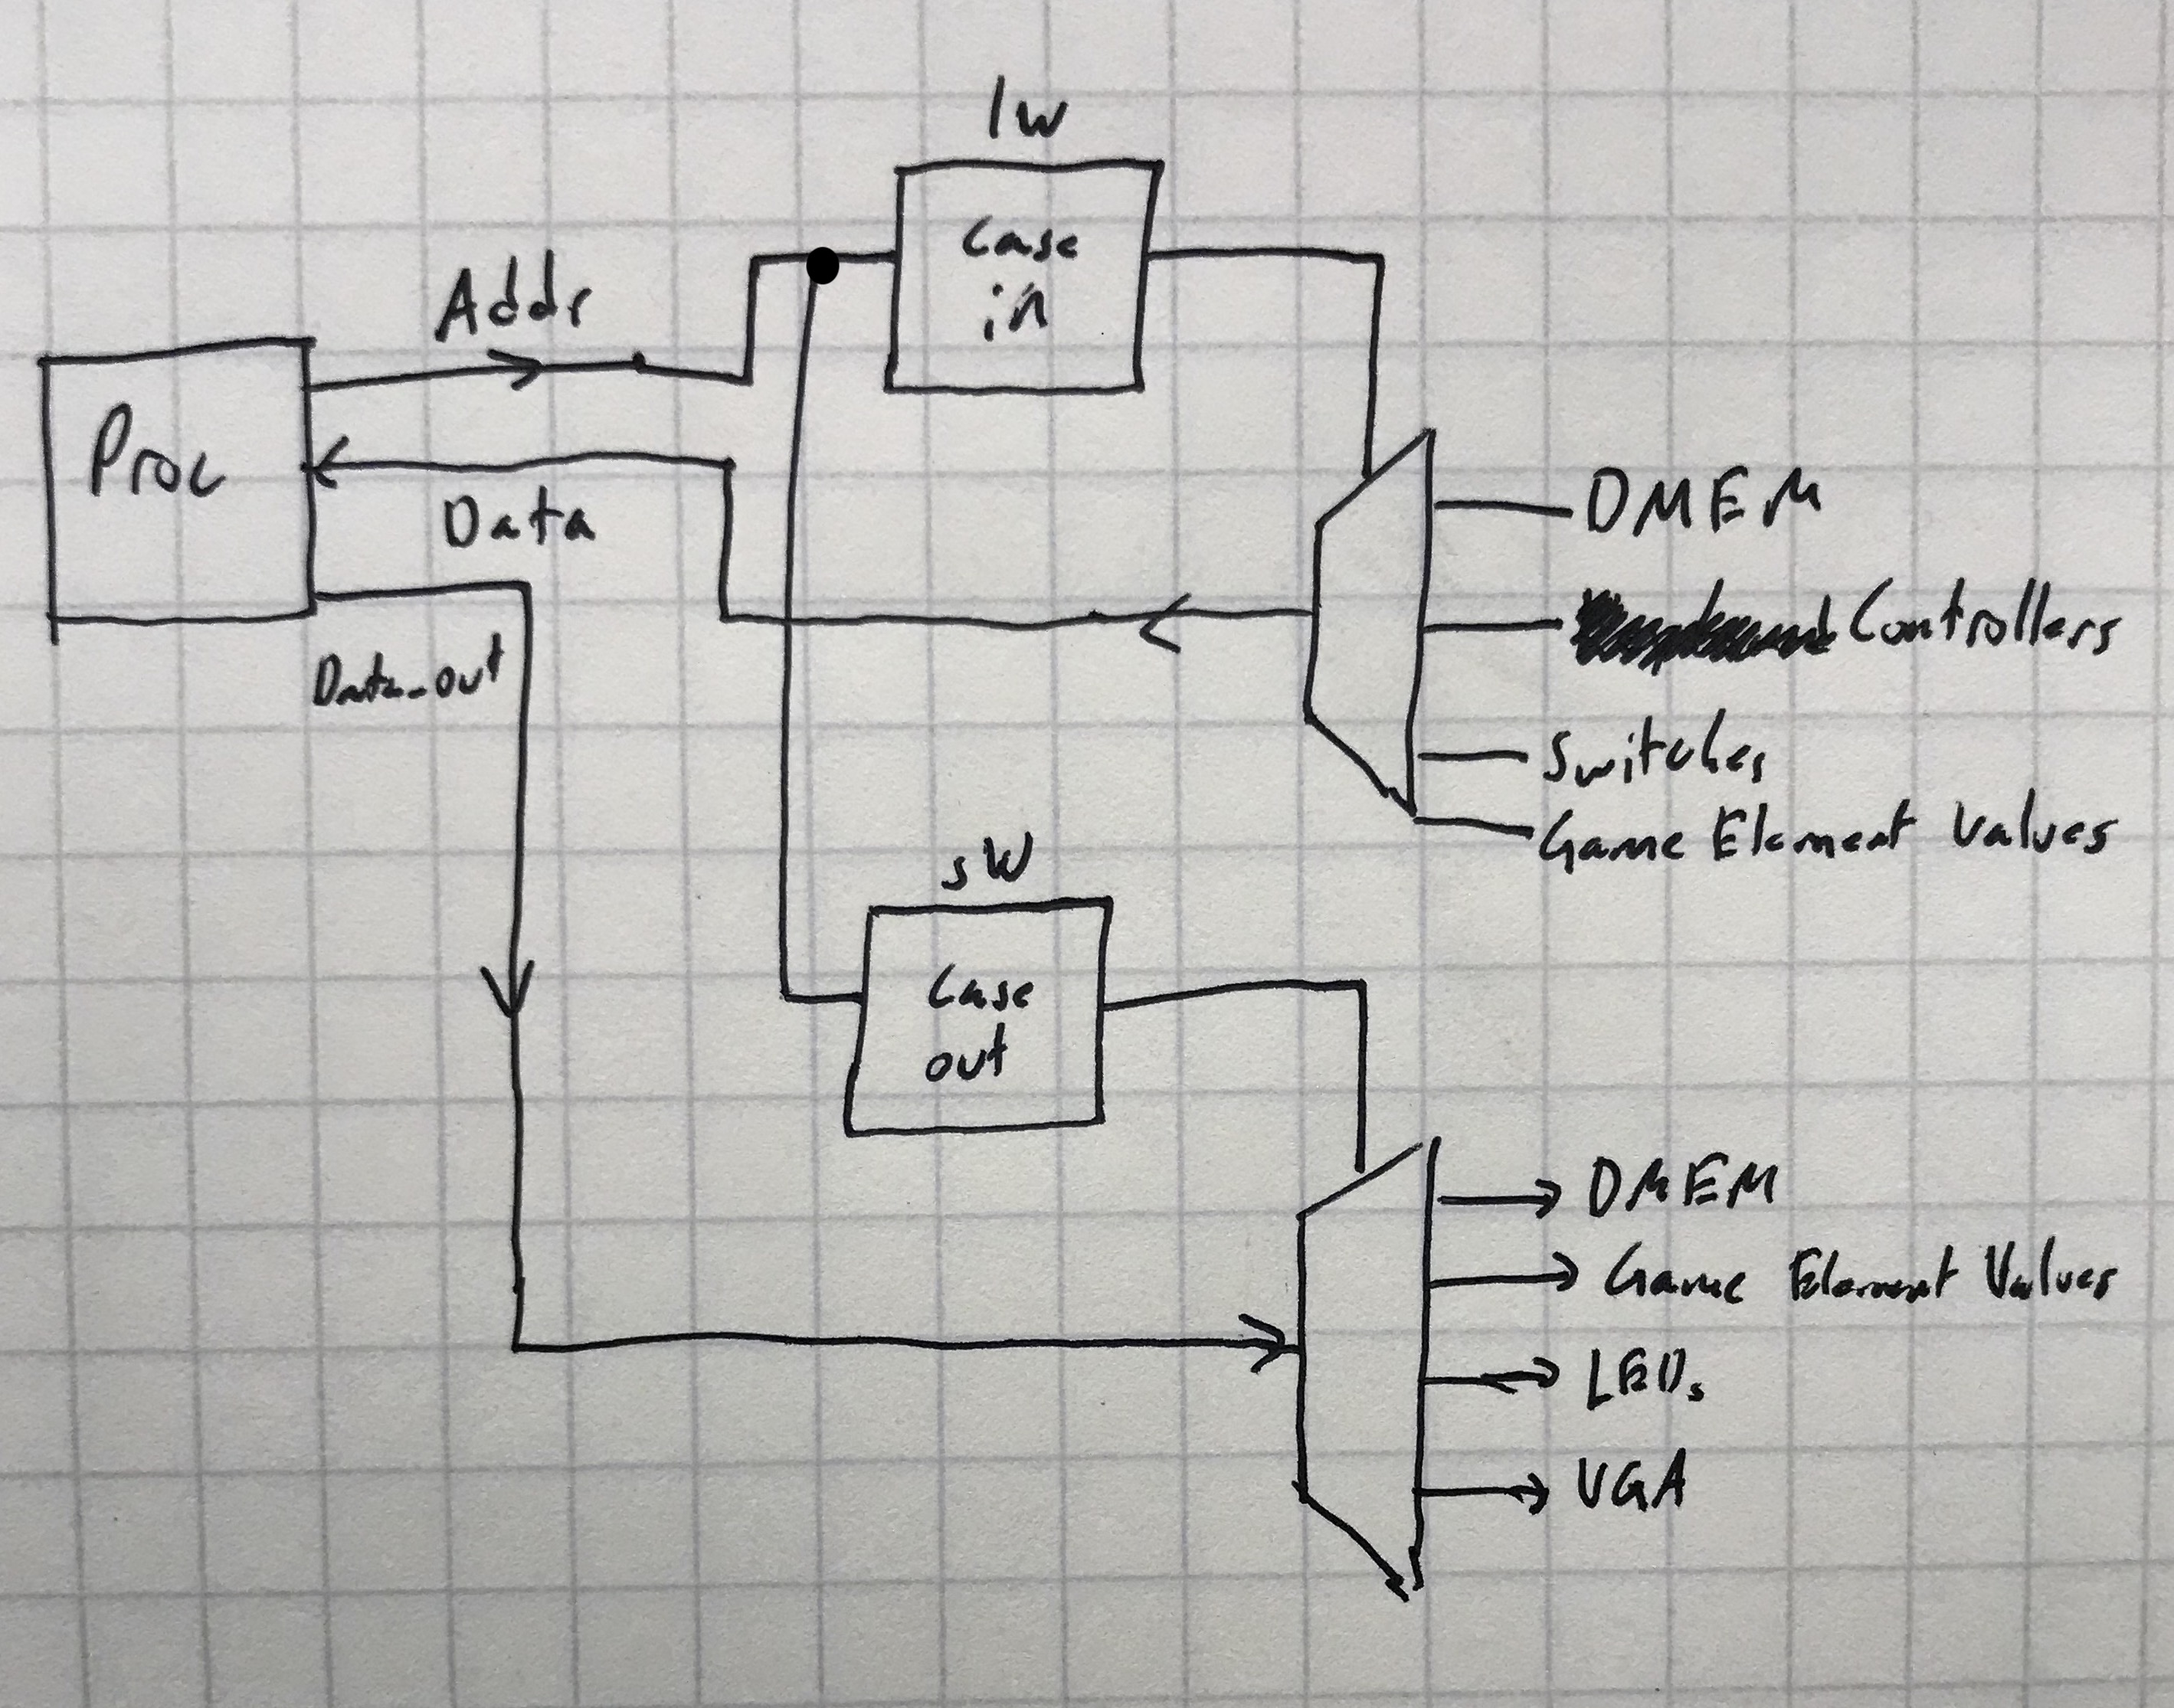 lw
Case
in
Addr
Proc
Data
DMEM
Controllers
Data_out
Switches
Game Element Values
sw
Case
out
DMEM
Game Element Values
LEDs
VGA